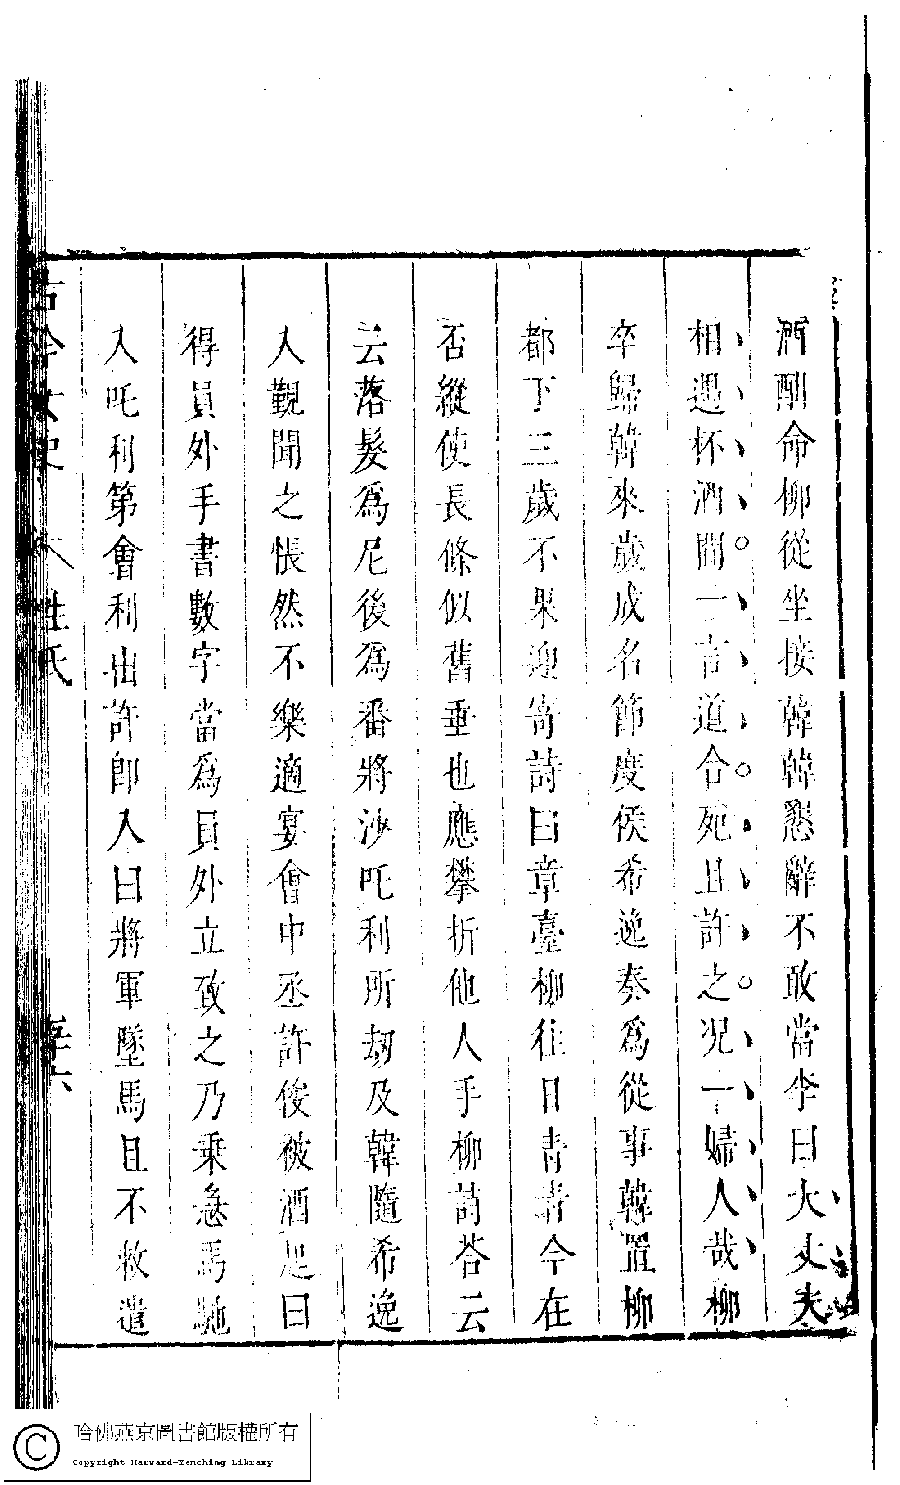 酒酣命柳從坐接韓韓懇辭不敢當李曰大丈夫
相遇杯酒間一言道合死且許之况一婦人哉柳
卒歸韓來歲成名節度侯希逸奏爲從事韓置柳
都下三歲不果迎寄詩曰章臺柳往日青青今在
否縱使長條似舊垂也應攀折他人手柳詩荅云
云落髮爲尼後爲番將沙吒利所刼及韓隨希逸
入覲聞之悵然不樂適宴會中丞許俊被酒起曰
得員外手書數字當爲員外立致之乃乗急馬馳
入吒利第會利出許即入曰將軍墜馬且不救遣
古今女史 姓氏
哈佛燕京圖書館版權所有
Copyright Harvard-Yenching Library